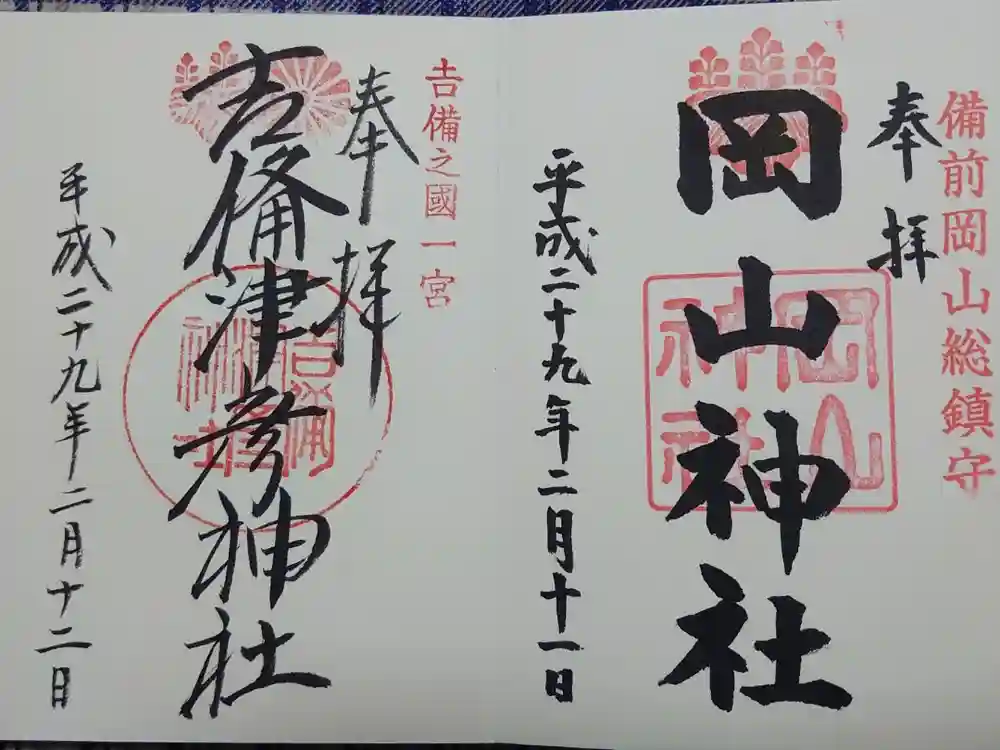 備前岡山総鎮守
奉拝
岡山神社
岡山神社
平成二十九年二月十一日
吉備之國一宮
奉拝
吉備津彦神社
平成二十九年二月十二日